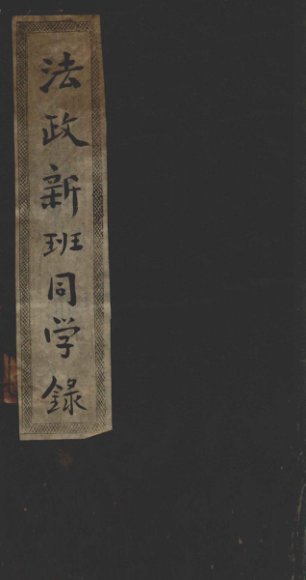 法政新班同学錄